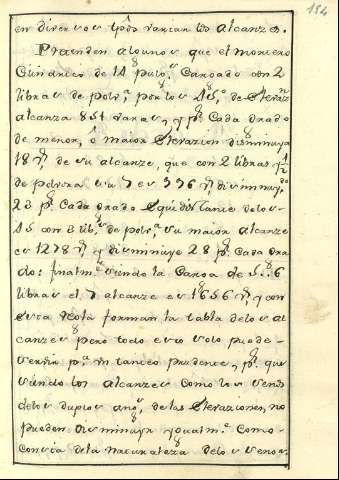 154
en diversos tpõs varian los alcanzes.
Pretenden algunos que el mortero
Cilindrico de 14 pulg.s Cargado con 2
libras de polv.a por los 45.g de Elevaz.n
alcanza 851 varas, y p.r Cada grado
de menor, ô maior Elevazion disminuya
18 de su alcanze, que con 2 libras y 1/2
de polvora su es 996 disminuy.do
23 p.r Cada grado Equidistante de los
45 con 3 lib.s de polv.a su maior alcanze
es 1278 y disminuye 28 p.r Cada gra
do: finalm.te siendo la Carga de 6
libras el alcanze es 1656 y con
esta Regla forman la tabla de los al
canzes pero todo esto solo puede
servir p.a un tanteo prudente, p.r que
siendo los alcanzes como los senos
de los duplos ang.s de las Elevaziones, no
pueden disminuyr ygualm.te Como
consta de la naturaleza de los senos